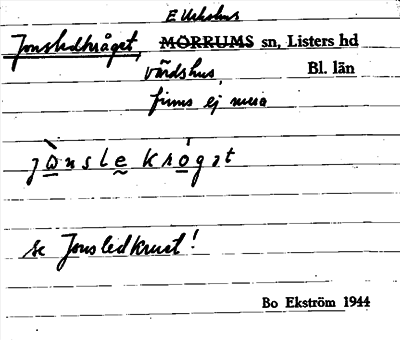 Elleholms
Jonsledkråget, MÖRRUMS sn, Listers hd
värdshus, Bl. län
finns ej mera
jònsle krógət
se Jonsledkrust!
Bo Ekström 1944